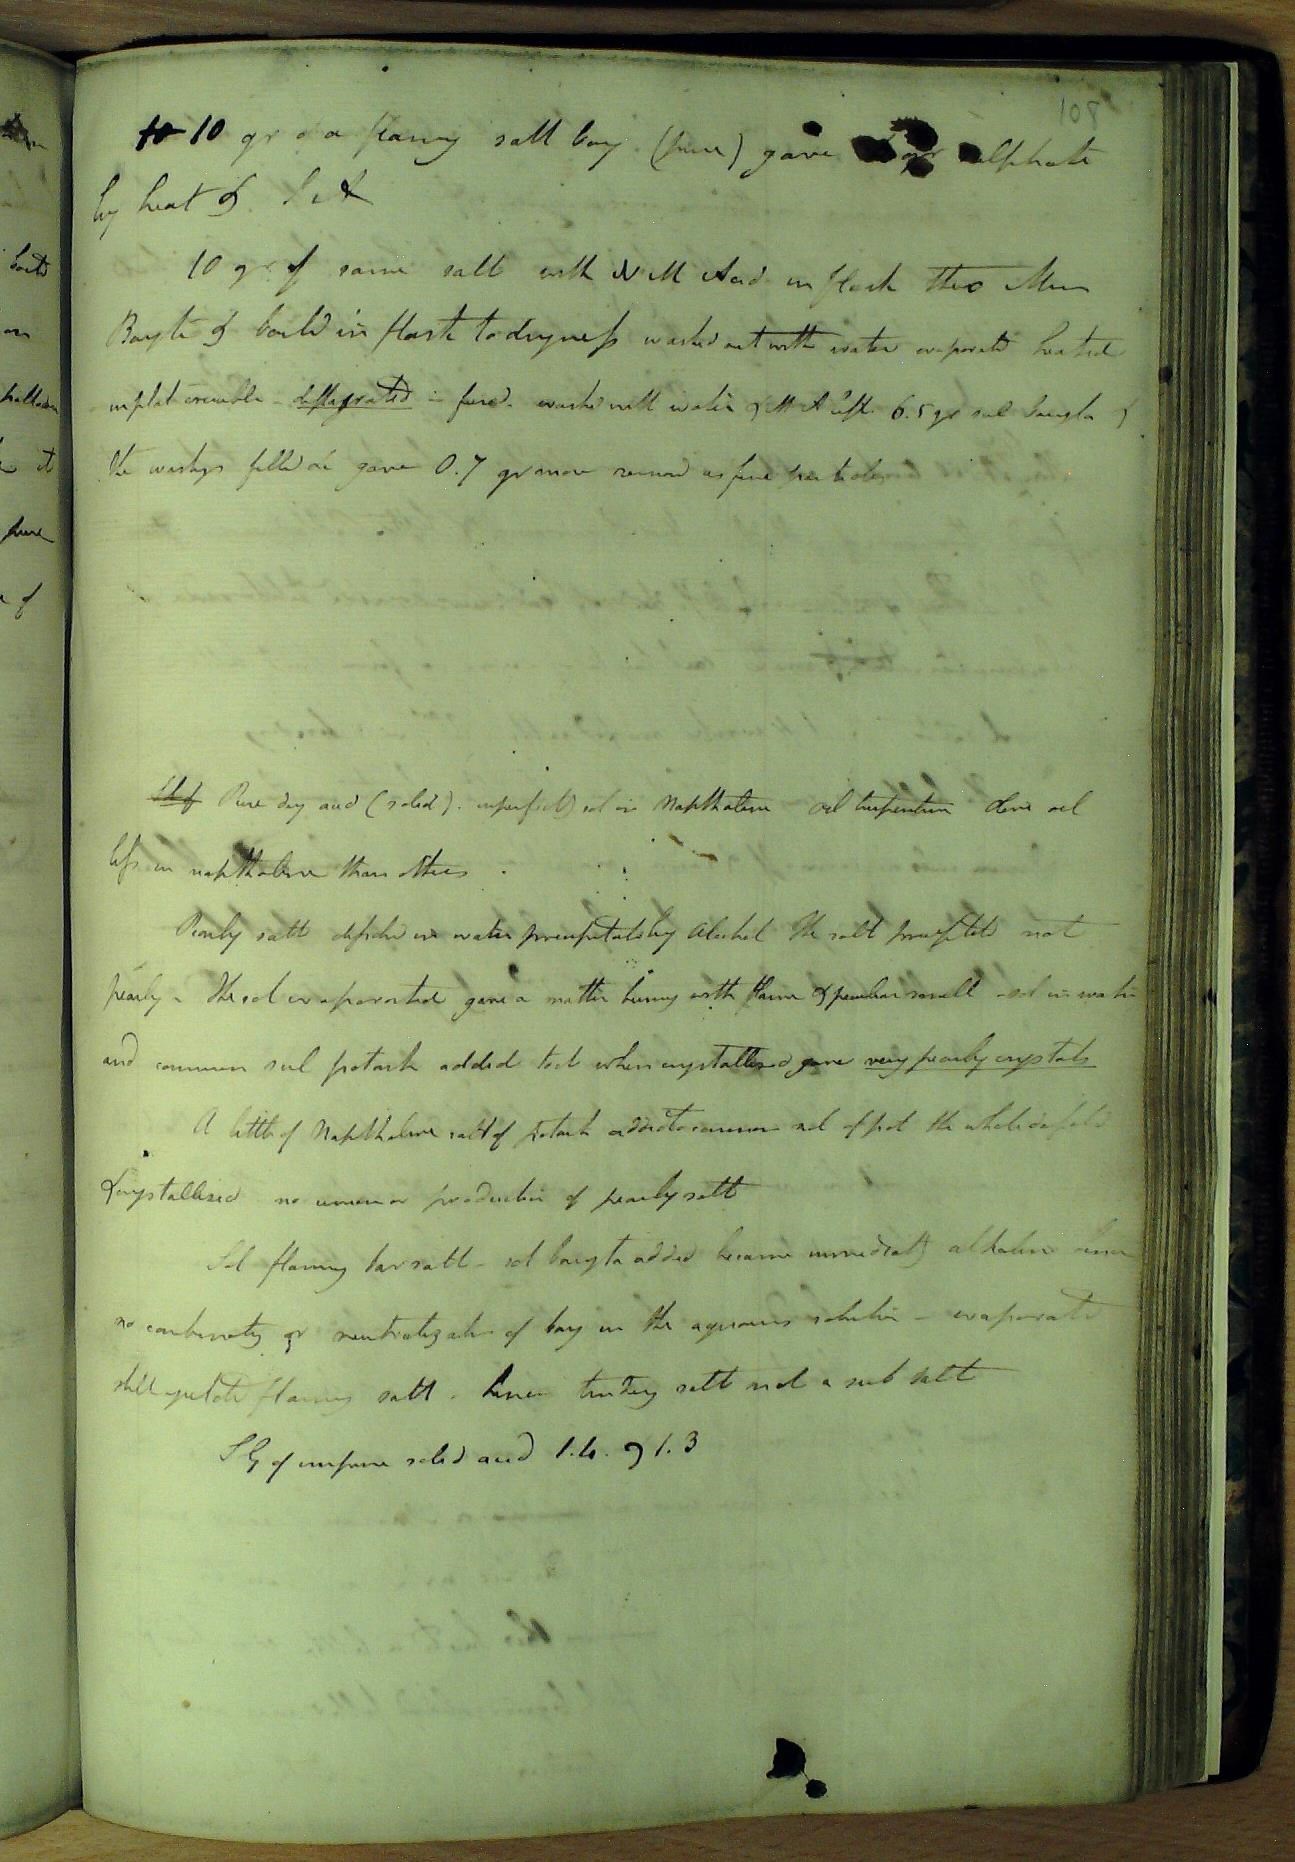 108
10 10 gr of a flaming salt bary (pure) gave gr sulphate
by heat & S A
10 gr of same salt with N M Acid in flask then Mur
Baryte & boild in flask to dryness washed out with water evaporated heated
in plat crucible - deflagrated - fused - washed with water & M A left 6.5 gr sul baryta &
the washings filld &c gave 0.7 gr more removd as fine particles
Pure dry acid (solid). imperfectly sol in Naphthaline oil turpentine olive oil
less in naphthaline than others
Pearly salt dissolved in water precipitated by Alcohol the salt precipitated not
pearly - the sol evaporated gave a matter burning with flame & peculiar smell - sol in water
and common sul potash added to it when crystallised gave very pearly crystals
A little of Naphthaline salt of potash added to common sul of pot the whole dissolvd
& crystallised no common production of pearly salt
Sol flaming bar salt - sol baryta added became immediatly alkaline hence
no combinatn or neutralization of bary in the aqueous solution - evaporated
still yielded flaming salt. hence tindery salt not a sub salt
S G of impure solid acid 1.4. or 1.3